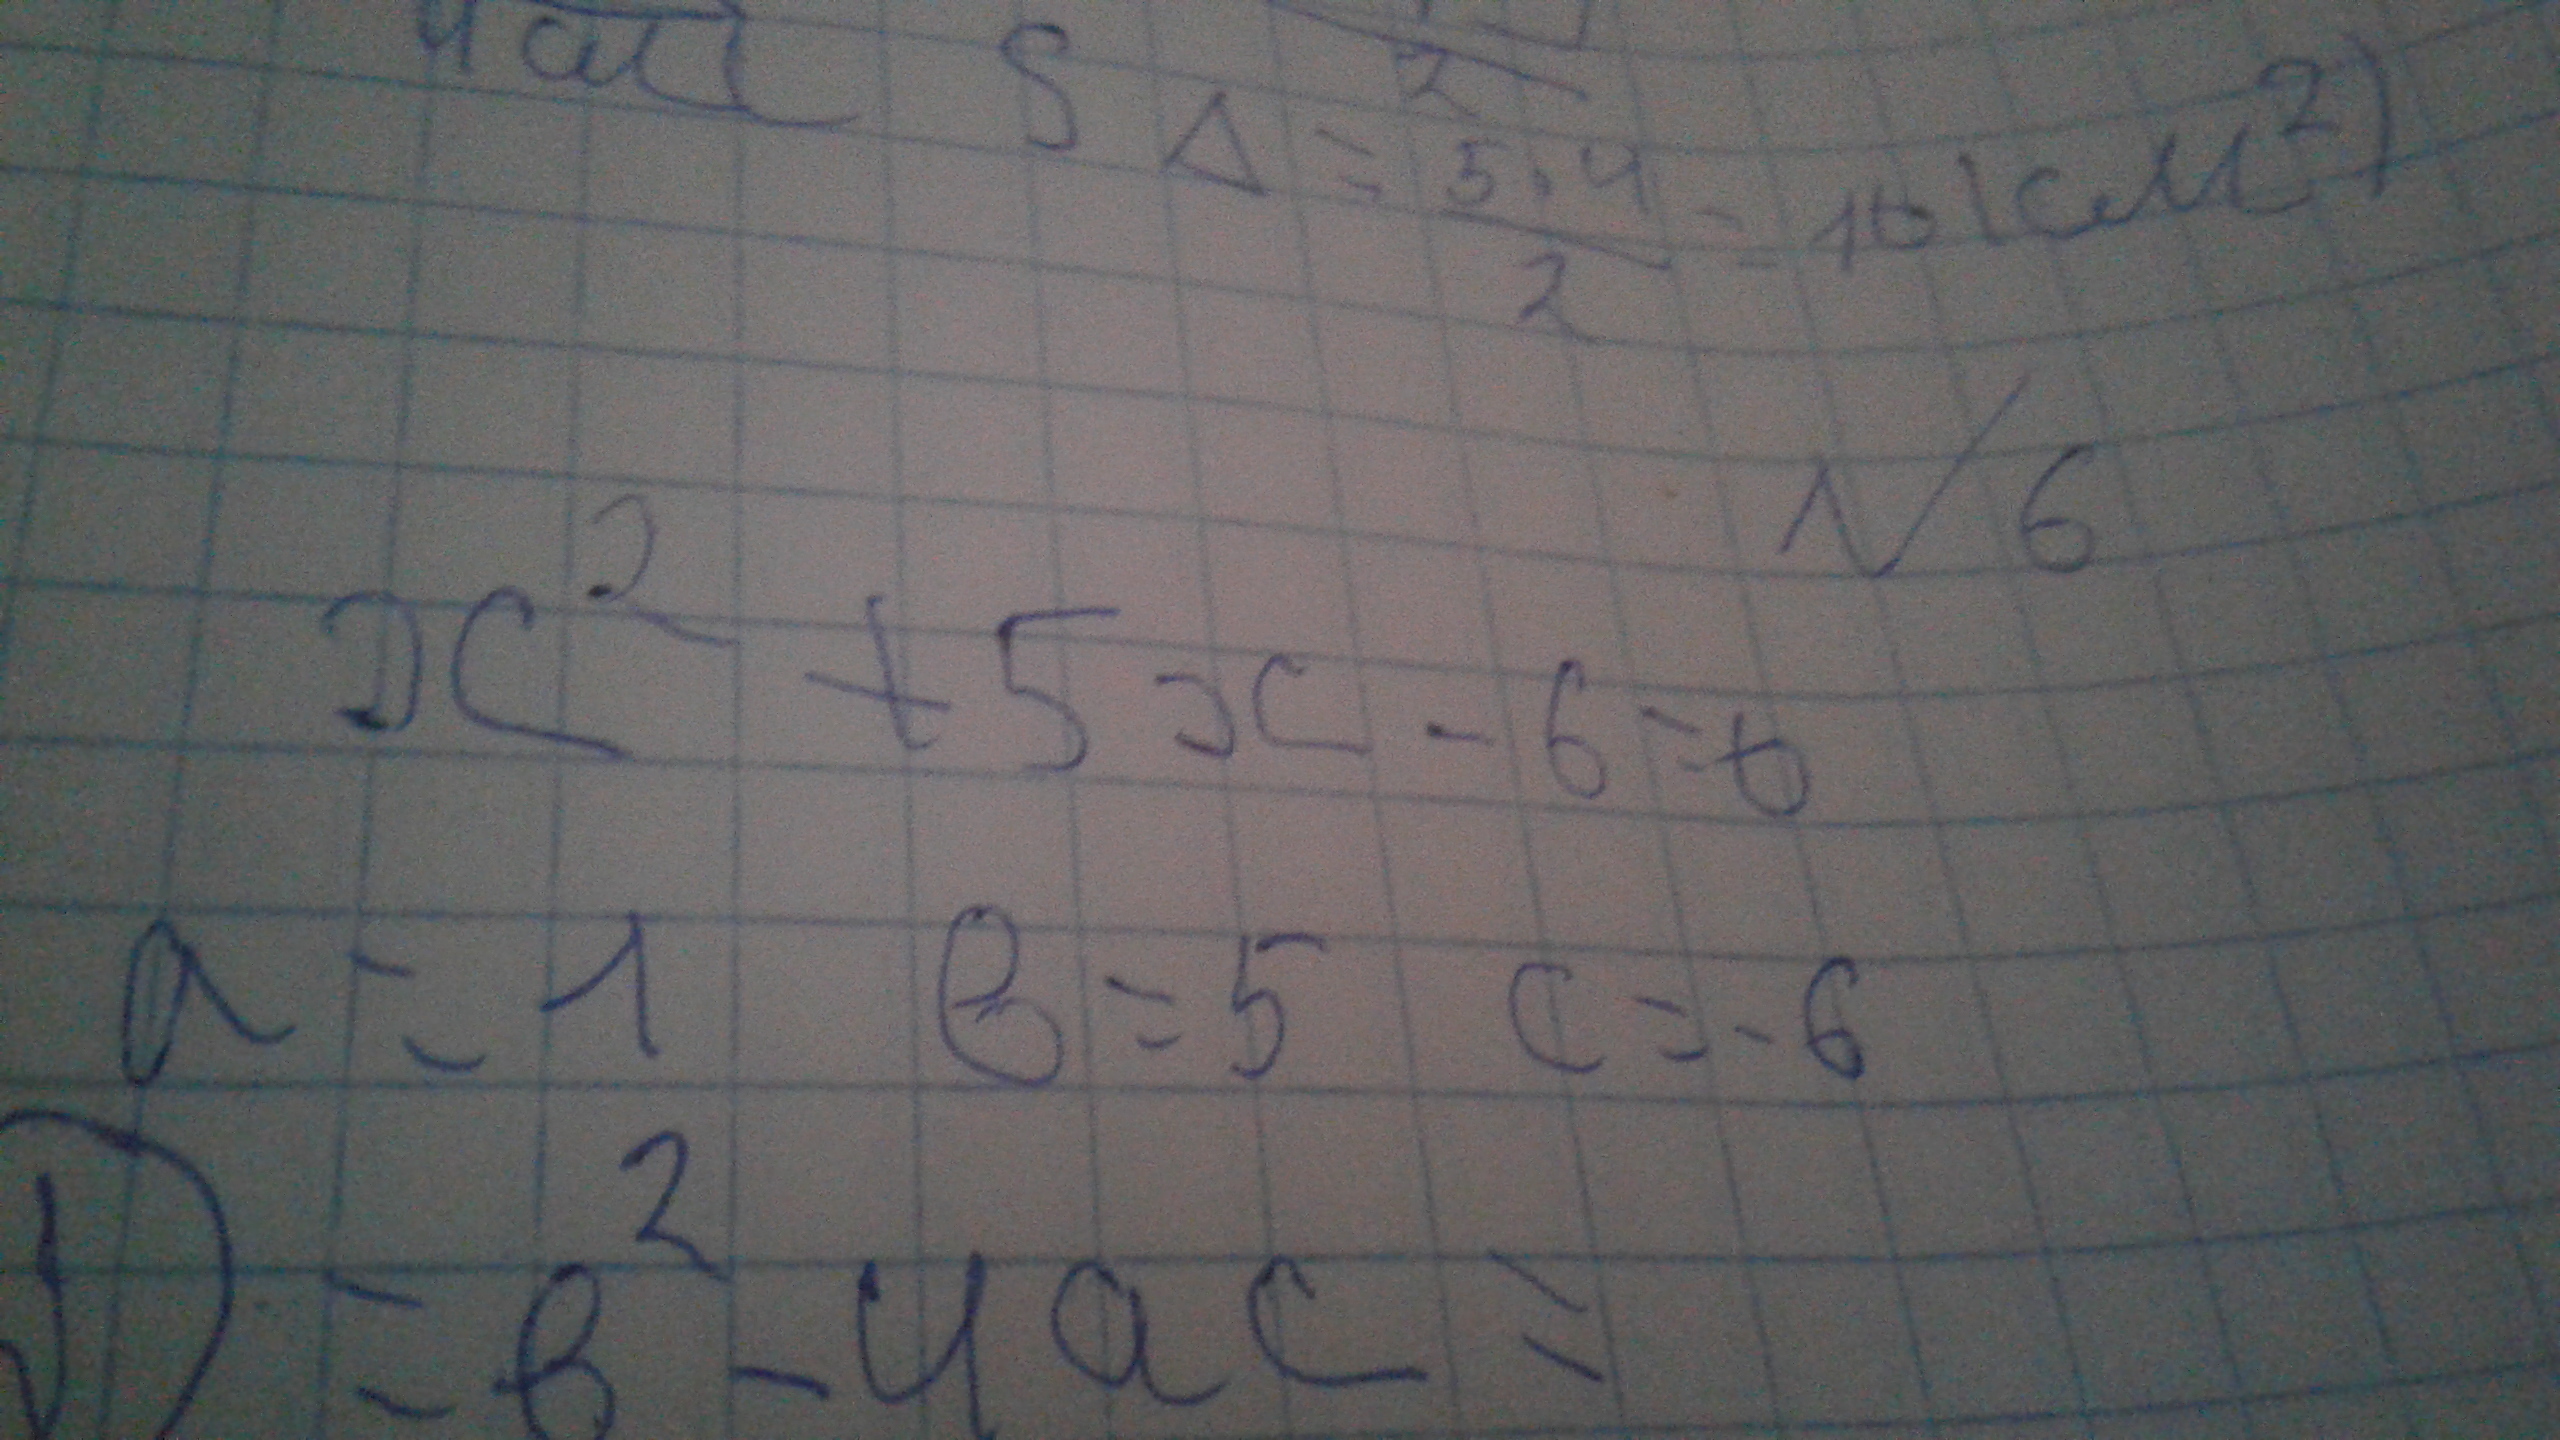 S Δ = 5·4/2 = 10 (см²)
№ 6
x² + 5x - 6 = 0
a = 1 в = 5 c = -6
D = в² - 4ac =